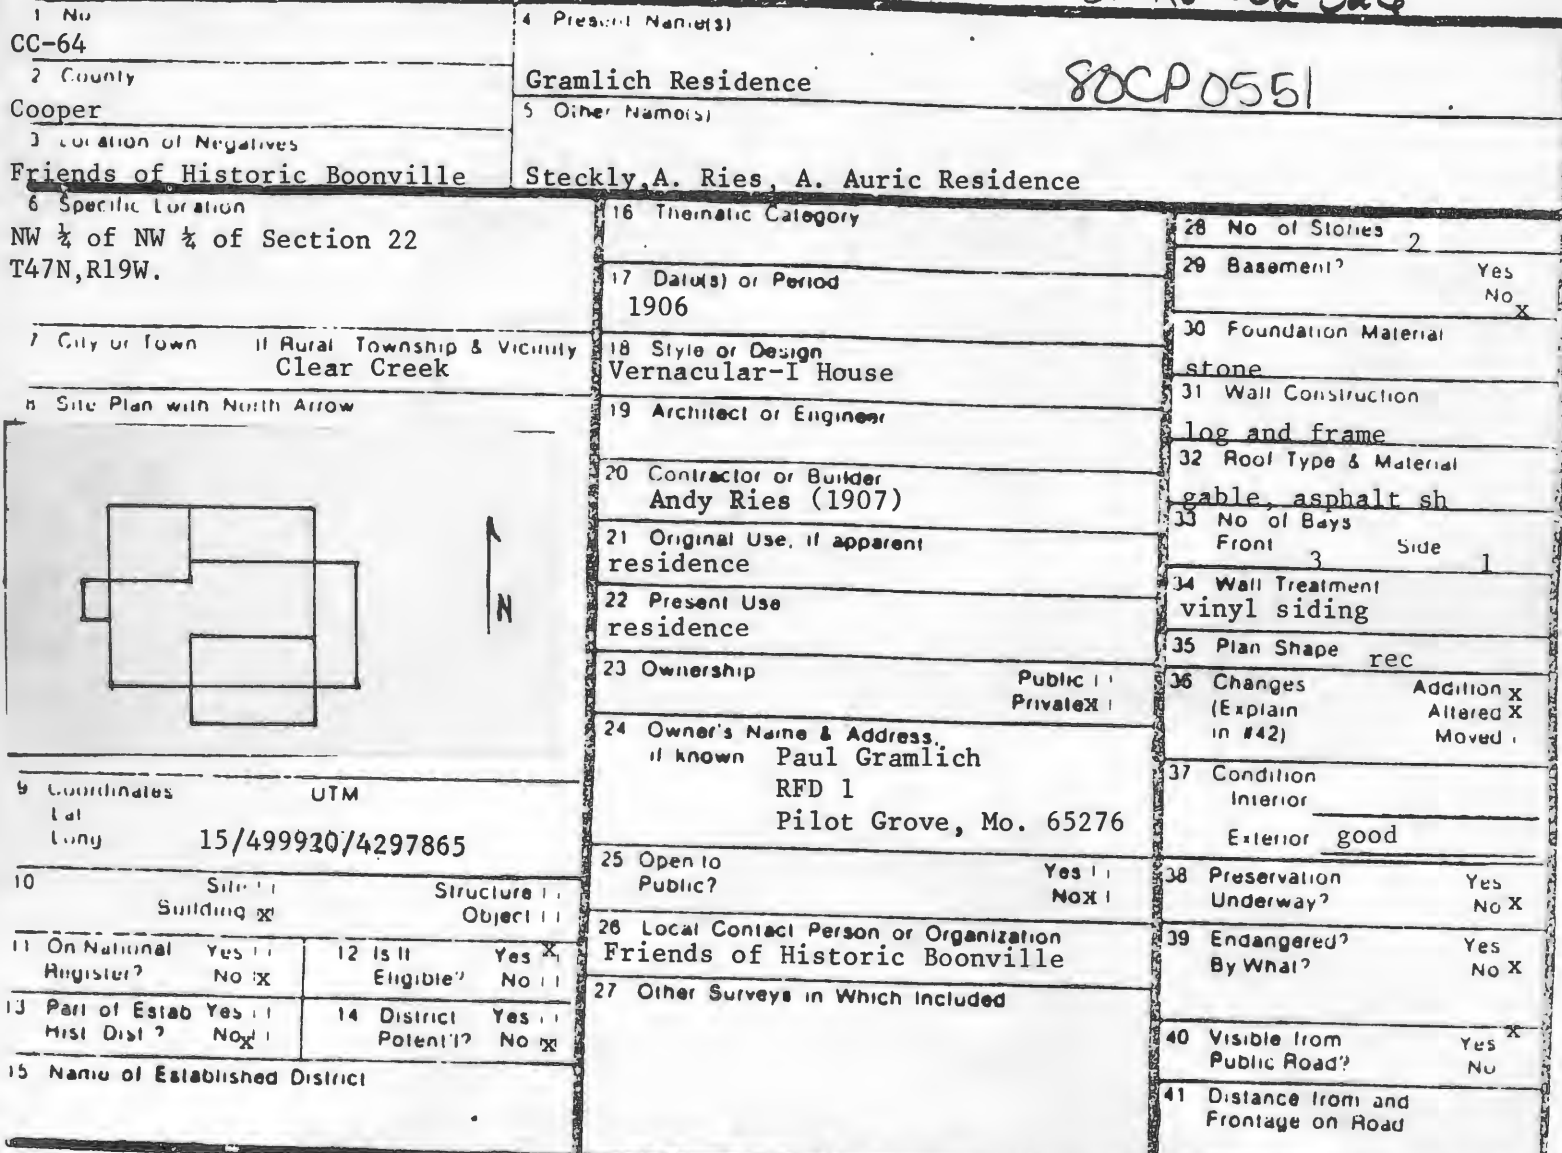 1 No
CC-64
2 County
Cooper
3 Location of Negatives
Friends of Historic Boonville
4 Present Name(s)
Gramlich Residence
80CP0551
5 Other Name(s)
Steckly,A. Ries, A. Auric Residence
6 Specific Location
NW ¼ of NW ¼ of Section 22
T47N,R19W.
7 City or Town If Rural Township & Vicinity
Clear Creek
8 Site Plan with North Arrow
N
9 Coordinates UTM
Lat
Long 15/499920/4297865
10 Site Structure
Building X Object
11 On National Yes
Register? No X
12 Is It Yes X
Eligible? No
13 Part of Estab Yes
Hist Dist? No X
14 District Yes
Potent'l? No X
15 Name of Established District
16 Thematic Category
17 Date(s) or Period
1906
18 Style or Design
Vernacular-I House
19 Architect or Engineer
20 Contractor or Builder
Andy Ries (1907)
21 Original Use, if apparent
residence
22 Present Use
residence
23 Ownership Public
Private X
24 Owner's Name & Address,
if known Paul Gramlich
RFD 1
Pilot Grove, Mo. 65276
25 Open to Yes
Public? No X
26 Local Contact Person or Organization
Friends of Historic Boonville
27 Other Surveys in Which Included
28 No of Stories 2
29 Basement? Yes
No X
30 Foundation Material
stone
31 Wall Construction
log and frame
32 Roof Type & Material
gable, asphalt sh
33 No of Bays
Front 3 Side 1
34 Wall Treatment
vinyl siding
35 Plan Shape rec
36 Changes Addition X
(Explain Altered X
in #42) Moved
37 Condition
Interior
Exterior good
38 Preservation Yes
Underway? No X
39 Endangered? Yes
By What? No X
40 Visible from Yes X
Public Road? No
41 Distance from and
Frontage on Road